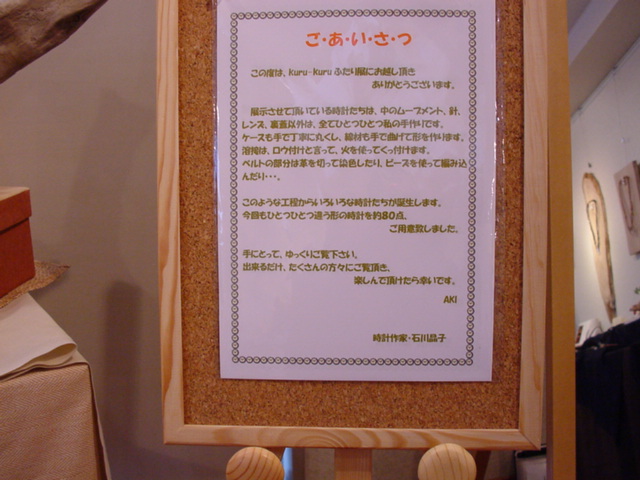 ご・あ・い・さ・つ
この度は、kuru-kuru ふたり展にお越し頂き
ありがとうございます。
展示させて頂いている時計たちは、中のムーブメント、針、
レンズ、裏蓋以外は、全てひとつひとつ私の手作りです。
ケースも手で丁寧に丸くし、線材も手で曲げて形を作ります。
溶接は、ロウ付けと言って、火を使ってくっ付けます。
ベルトの部分は革を切って染色したり、ビーズを使って編み込
んだり・・・。
このような工程からいろいろな時計たちが誕生します。
今回もひとつひとつ違う形の時計を約80点、
ご用意致しました。
手にとって、ゆっくりご覧下さい。
出来るだけ、たくさんの方々にご覧頂き、
楽しんで頂けたら幸いです。
AKI
時計作家・石川晶子